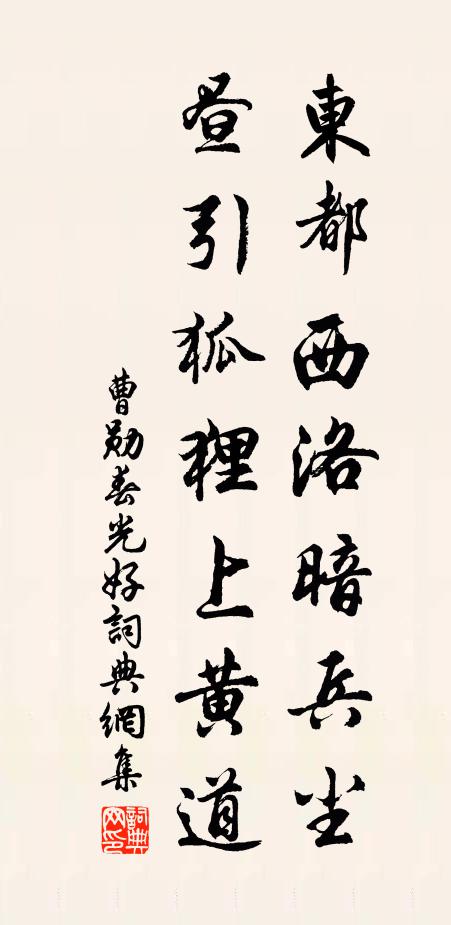 東都西洛暗兵尘
昼引狐狸上黄道
曹勛春光好詞典網集
詞典网印